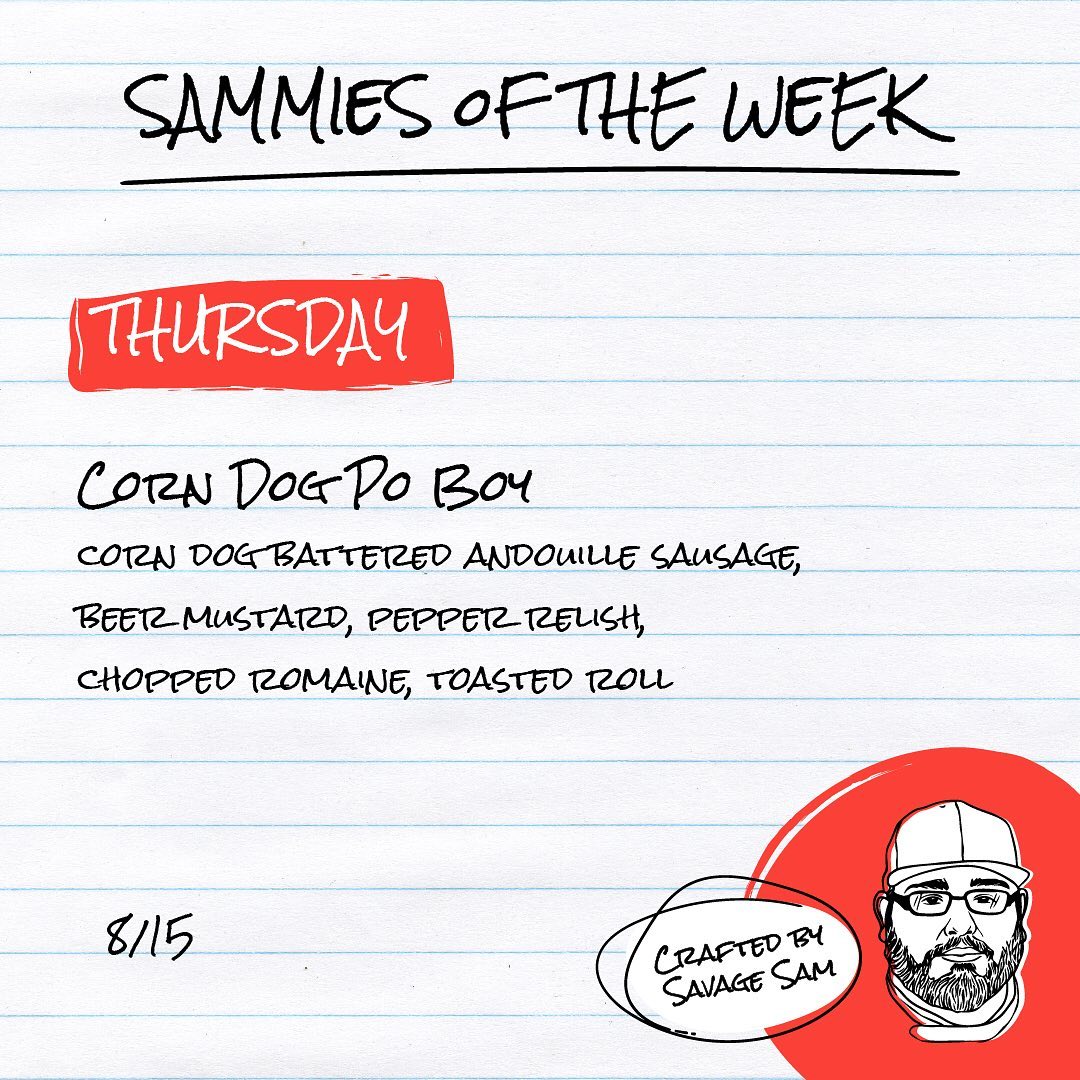 SAMMIES OF THE WEEK
THURSDAY
CORN DOG PO BOY
CORN DOG BATTERED ANDOUILLE SAUSAGE,
BEER MUSTARD, PEPPER RELISH,
CHOPPED ROMAINE, TOASTED ROLL
8/15
CRAFTED BY
SAVAGE SAM